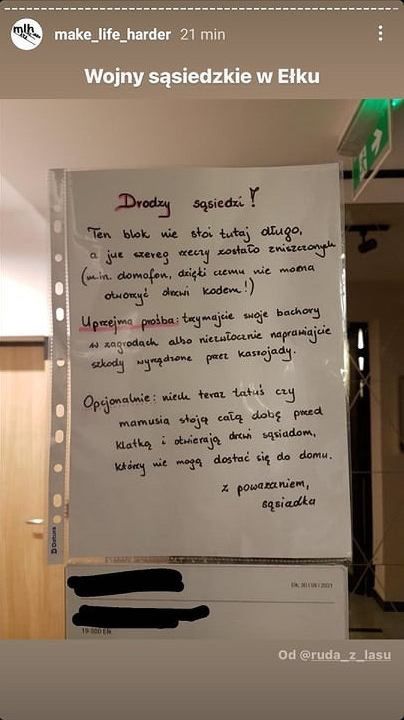 mlh
make_life_harder 21 min
Wojny sąsiedzkie w Ełku
Drodzy sąsiedzi!
Ten blok nie stoi tutaj długo,
a już szereg rzeczy zostało zniszczonych
(m.in. domofon, dzięki czemu nie można
otworzyć drzwi kodem!)
Uprzejma prośba: trzymajcie swoje bachory
w zagrodach albo niezwłocznie naprawiajcie
szkody wyrządzone przez kaszojady.
Opcjonalnie: niech teraz tatuś czy
mamusia stoją całą dobę przed
klatką i otwierają drzwi sąsiadom,
którzy nie mogą dostać się do domu.
z poważaniem,
sąsiadka
Datura
Ełk, 30 / 08 / 2021
19-300 Ełk
Od @ruda_z_lasu